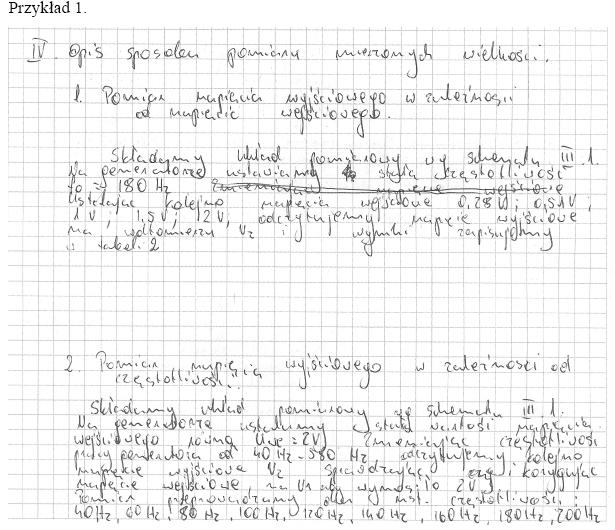 Przykład 1.
IV. Opis sposobu pomiaru mierzonych wielkości.
1. Pomiar napięcia wyjściowego w zależności
od napięcia wejściowego.
Składamy układ pomiarowy wg schematu III 1.
Na generatorze ustawiamy stałą częstotliwość
f0 = 180 Hz napięcie wejściowe
Ustalając kolejno napięcia wejściowe 0,25V; 0,51V;
1V; 1,5V; 2V, odczytujemy napięcie wyjściowe
na woltomierzu V2 i wyniki zapisujemy
w tabeli 2
2. Pomiar napięcia wyjściowego w zależności od
częstotliwości.
Składamy układ pomiarowy wg schematu III 1.
Na generatorze ustalamy stałą wartość napięcia
wejściowego równą Uwe = 2V. Zmieniając częstotliwości
pracy generatora od 40 Hz - 580 Hz odczytujemy kolejno
napięcie wyjściowe V2 sprawdzając i korygując
napięcie wejściowe, na V1 aby wynosiło 2V.
Pomiar przeprowadzamy dla nast. częstotliwości:
40Hz, 60Hz, 80Hz, 100Hz, 120Hz, 140Hz, 160Hz, 180Hz, 200Hz